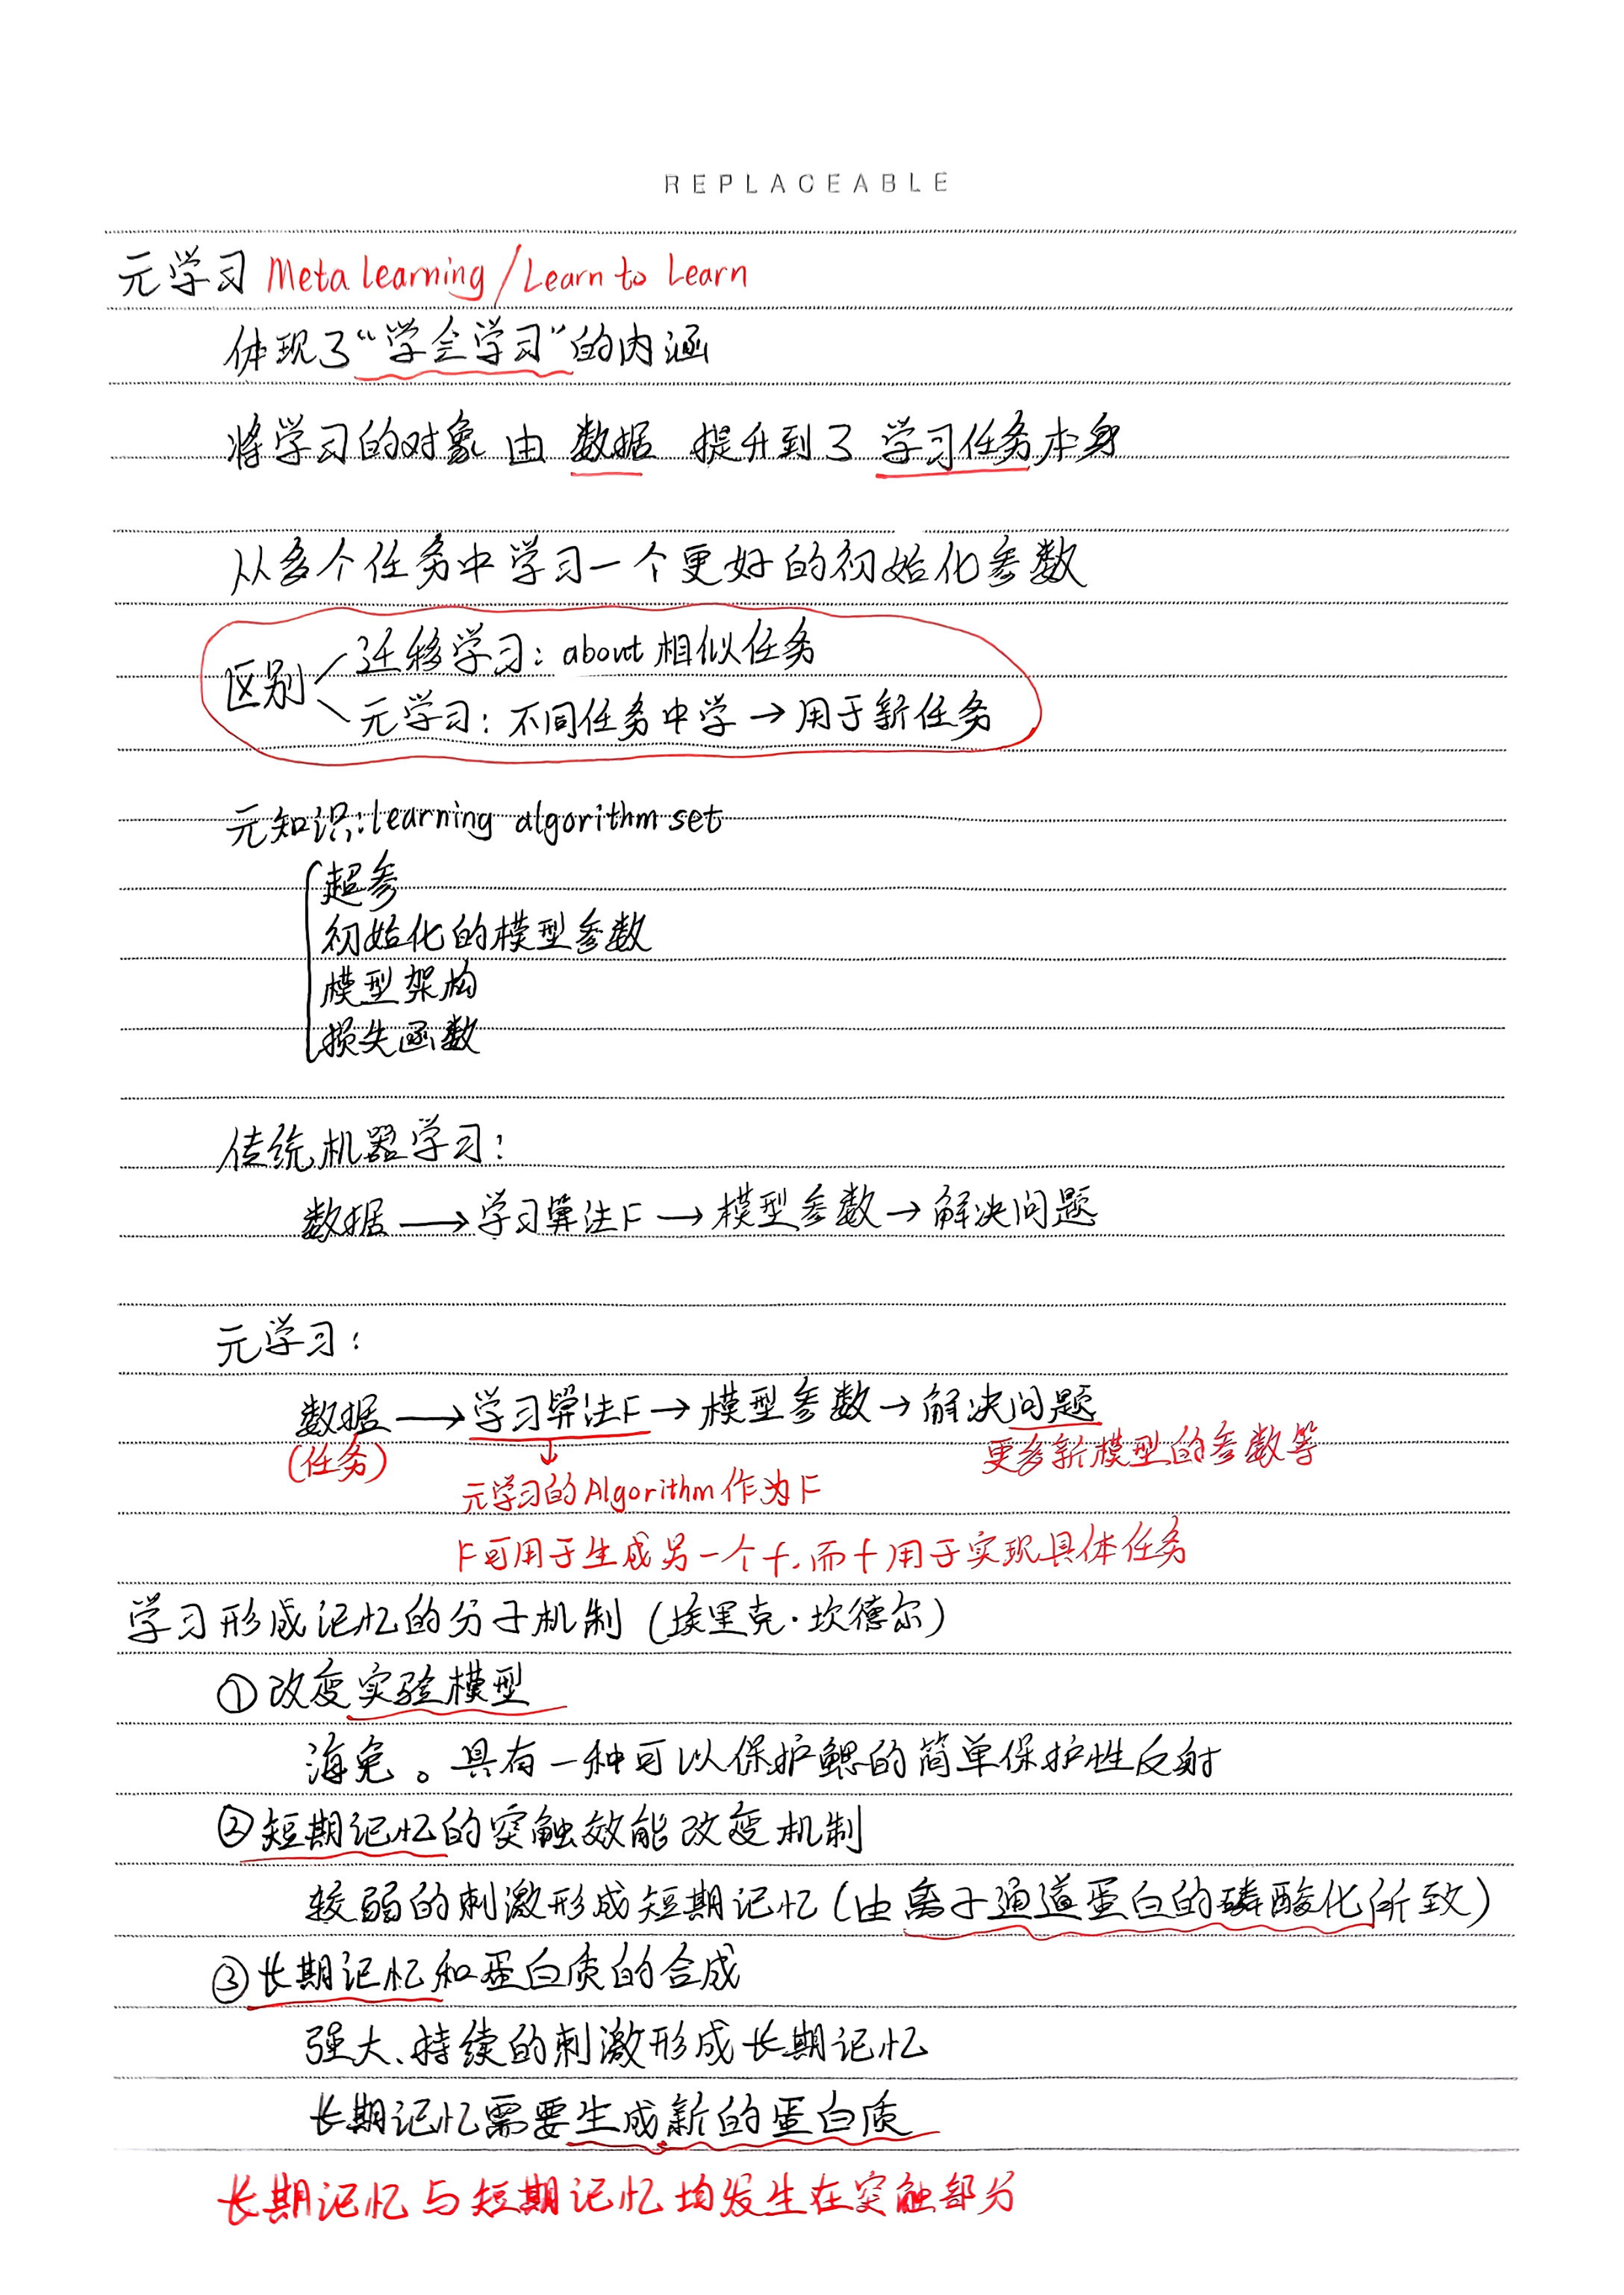 REPLACEABLE
元学习 Meta learning/Learn to Learn
体现了“学会学习”的内涵
将学习的对象 由 数据 提升到了 学习任务本身
从多个任务中学习一个更好的初始化参数
区别
迁移学习：about 相似任务
元学习：不同任务中学→用于新任务
元知识：learning algorithm set
超参
初始化的模型参数
模型架构
损失函数
传统机器学习：
数据→学习算法F→模型参数→解决问题
元学习：
数据→学习算法F→模型参数→解决问题
(任务)
更多新模型的参数等
↓
元学习的Algorithm作为F
F可用于生成另一个f，而f用于实现具体任务
学习形成记忆的分子机制（埃里克·坎德尔）
①改变实验模型
海兔。具有一种可以保护鳃的简单保护性反射
②短期记忆的突触效能改变机制
较弱的刺激形成短期记忆（由离子通道蛋白的磷酸化所致）
③长期记忆和蛋白质的合成
强大、持续的刺激形成长期记忆
长期记忆需要生成新的蛋白质
长期记忆与短期记忆均发生在突触部分